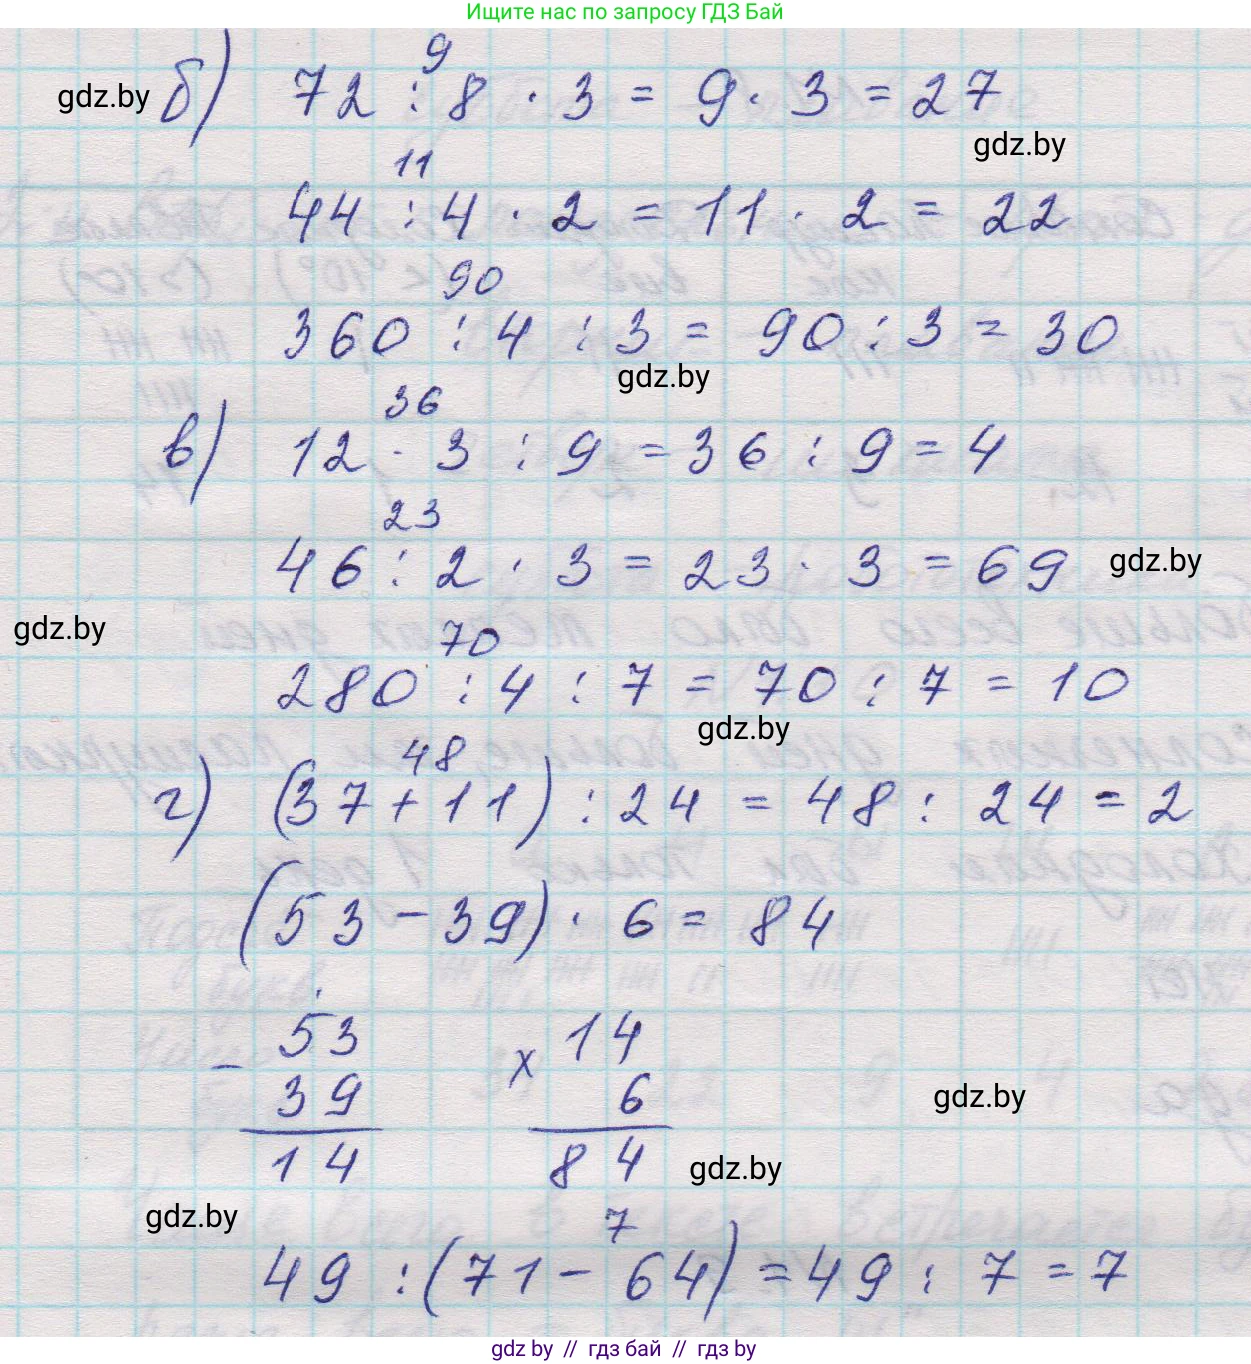 Ищите нас по запросу ГДЗ Бай
9
gdz.by б) 72 : 8 · 3 = 9 · 3 = 27
gdz.by
11
44 : 4 · 2 = 11 · 2 = 22
90
360 : 4 : 3 = 90 : 3 = 30
gdz.by
36
в) 12 · 3 : 9 = 36 : 9 = 4
23
46 : 2 · 3 = 23 · 3 = 69 gdz.by
gdz.by
70
280 : 4 : 7 = 70 : 7 = 10
gdz.by
48
г) (37 + 11) : 24 = 48 : 24 = 2
(53 - 39) · 6 = 84
- 53 x 14
39 6 gdz.by
14 84 gdz.by
gdz.by
7
49 : (71 - 64) = 49 : 7 = 7
gdz.by // гдз бай // гдз by